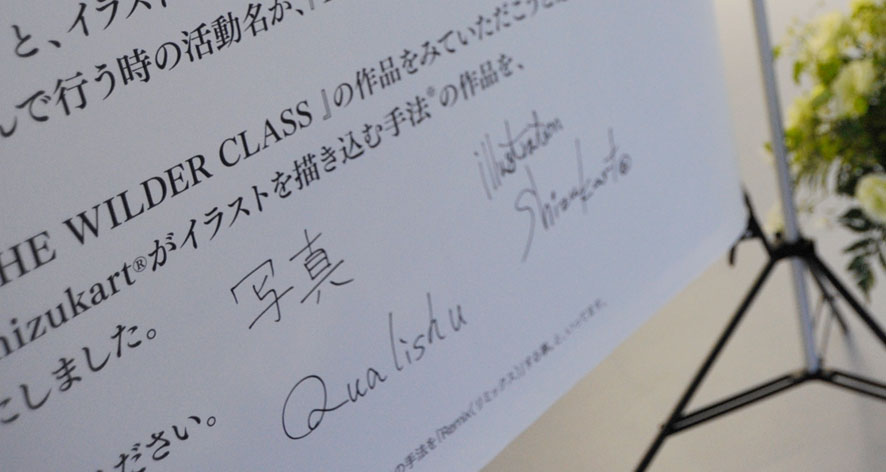 と、イラスト
んで行う時の活動名が、『
HE WILDER CLASS』の作品をみていただこうと
hizukart®がイラストを描き込む手法※の作品を、
にしました。
ください。
illustration
Shizukart®
写真
Qualishu
の手法を『Remix(リミックス)』する事。と、いいます。